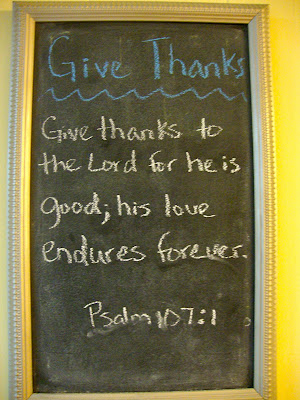 Give Thanks
Give thanks to
the Lord for he is
good; his love
endures forever.
Psalm 107:1